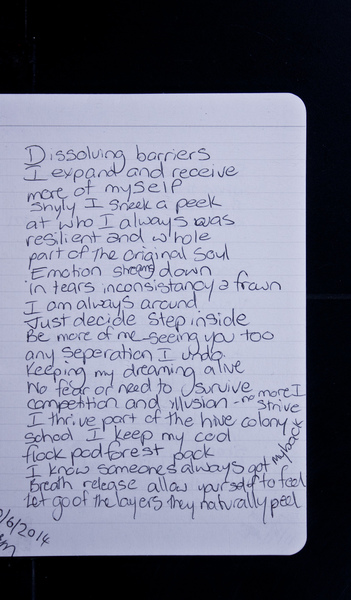 Dissolving barriers
I expand and receive
more of myself
Shyly I sneek a peek
at who I always was
resilient and whole
part of the original soul
Emotion streams down
in tears inconsistancy a frown
I am always around
Just decide step inside
Be more of me - seeing you too
any seperation I undo.
Keeping my dreaming alive
No fear or need to survive
competition and illusion - no more I strive
I thrive part of the hive colony
school I keep my cool
flock pod forest pack
I know someones always got my back
Breath release allow yourself to feel
Let go of the layers they naturally peel
/6/2014